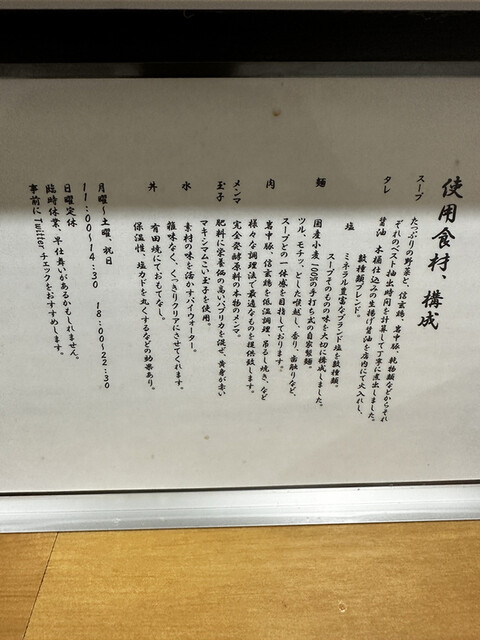 使用食材、構成
スープ たっぷりの野菜と、信玄鶏、岩中豚、乾物類などからそれ
ぞれのベスト抽出時間を計算して丁寧に煮出しました。
タレ 醤油 木桶仕込みの生揚げ醤油を店内にて火入れし、
数種類ブレンド。
塩 ミネラル豊富なブランド塩を数種類。
スープそのものの味を大切に構成しました。
麺 国産小麦100%の手打ち式の自家製麺。
ツル、モチッ、とした喉越し、香り、歯触りなど、
スープとの一体感を目指しております。
肉 岩中豚、信玄鶏を低温調理、吊るし焼き、など
様々な調理法で最適なものを提供致します。
メンマ 完全発酵原料の本物のメンマ。
玉子 肥料に栄養価の高いパプリカを混ぜ、黄身が赤い
マキシマムこい玉子を使用。
水 素材の味を活かすパイウォーター。
雑味なく、くっきりクリアにさせてくれます。
丼 有田焼にておもてなし。
保温性、塩カドを丸くするなどの効果あり。
月曜〜土曜、祝日
11:00〜14:30 18:00〜22:30
日曜定休
臨時休業、早仕舞いがあるかもしれません。
事前にTwitterチェックをおすすめします。